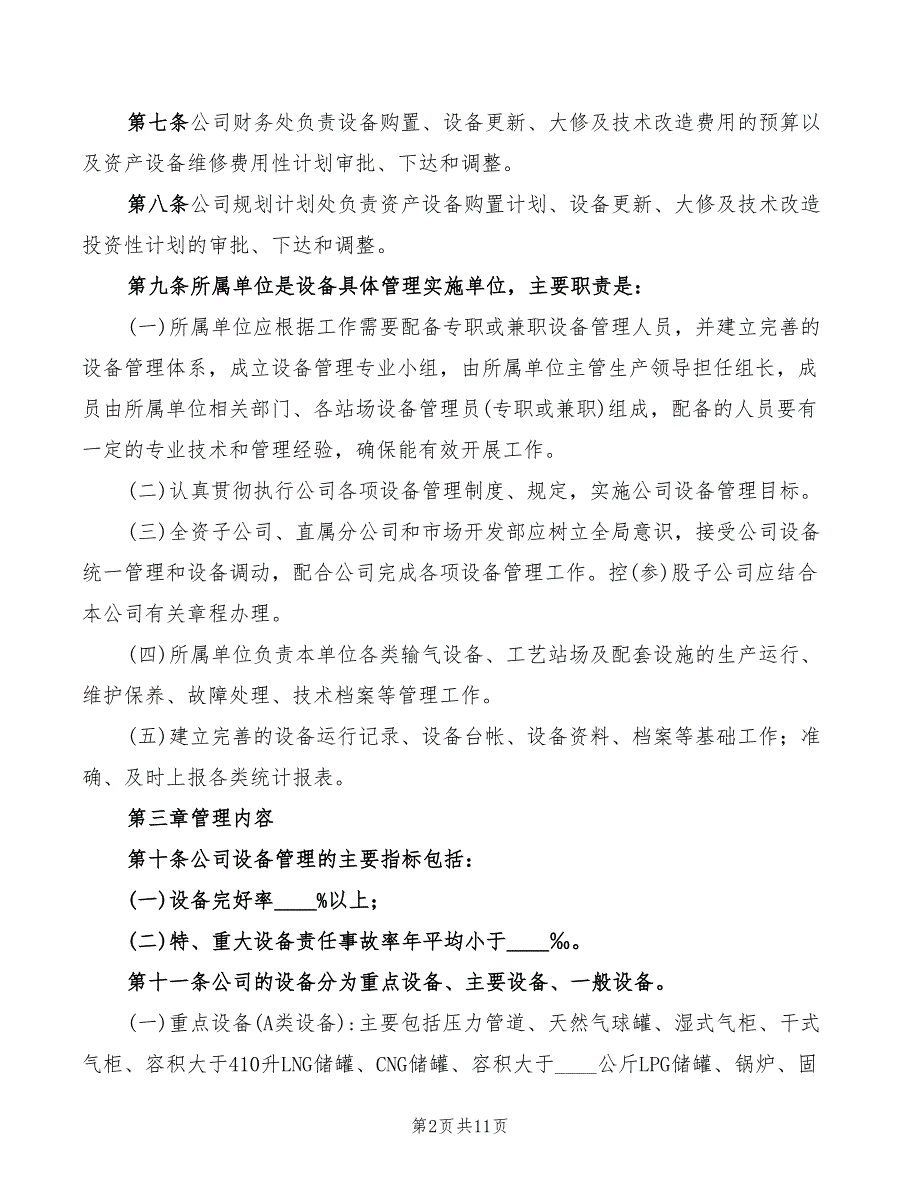 第七条公司财务处负责设备购置、设备更新、大修及技术改造费用的预算以
及资产设备维修费用性计划审批、下达和调整。
第八条公司规划计划处负责资产设备购置计划、设备更新、大修及技术改造
投资性计划的审批、下达和调整。
第九条所属单位是设备具体管理实施单位，主要职责是：
(一)所属单位应根据工作需要配备专职或兼职设备管理人员，并建立完善的
设备管理体系，成立设备管理专业小组，由所属单位主管生产领导担任组长，成
员由所属单位相关部门、各站场设备管理员(专职或兼职)组成，配备的人员要有
一定的专业技术和管理经验，确保能有效开展工作。
(二)认真贯彻执行公司各项设备管理制度、规定，实施公司设备管理目标。
(三)全资子公司、直属分公司和市场开发部应树立全局意识，接受公司设备
统一管理和设备调动，配合公司完成各项设备管理工作。控(参)股子公司应结合
本公司有关章程办理。
(四)所属单位负责本单位各类输气设备、工艺站场及配套设施的生产运行、
维护保养、故障处理、技术档案等管理工作。
(五)建立完善的设备运行记录、设备台帐、设备资料、档案等基础工作；准
确、及时上报各类统计报表。
第三章管理内容
第十条公司设备管理的主要指标包括：
(一)设备完好率____%以上；
(二)特、重大设备责任事故率年平均小于____‰。
第十一条公司的设备分为重点设备、主要设备、一般设备。
(一)重点设备(A类设备)：主要包括压力管道、天然气球罐、湿式气柜、干式
气柜、容积大于410升LNG储罐、CNG储罐、容积大于____公斤LPG储罐、锅炉、固
第2页共11页